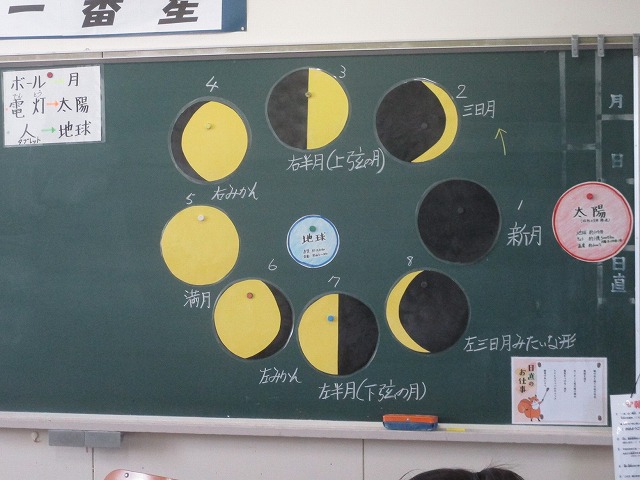 一番星
ボール→月
電灯→太陽
人→地球
タブレット
4
3
2
三日月
右半月(上弦の月)
右みかん
5
1
新月
地球
太陽
満月
6
7
8
左みかん
左半月(下弦の月)
左三日月みたいな形
月
日
日直
日直の
お仕事